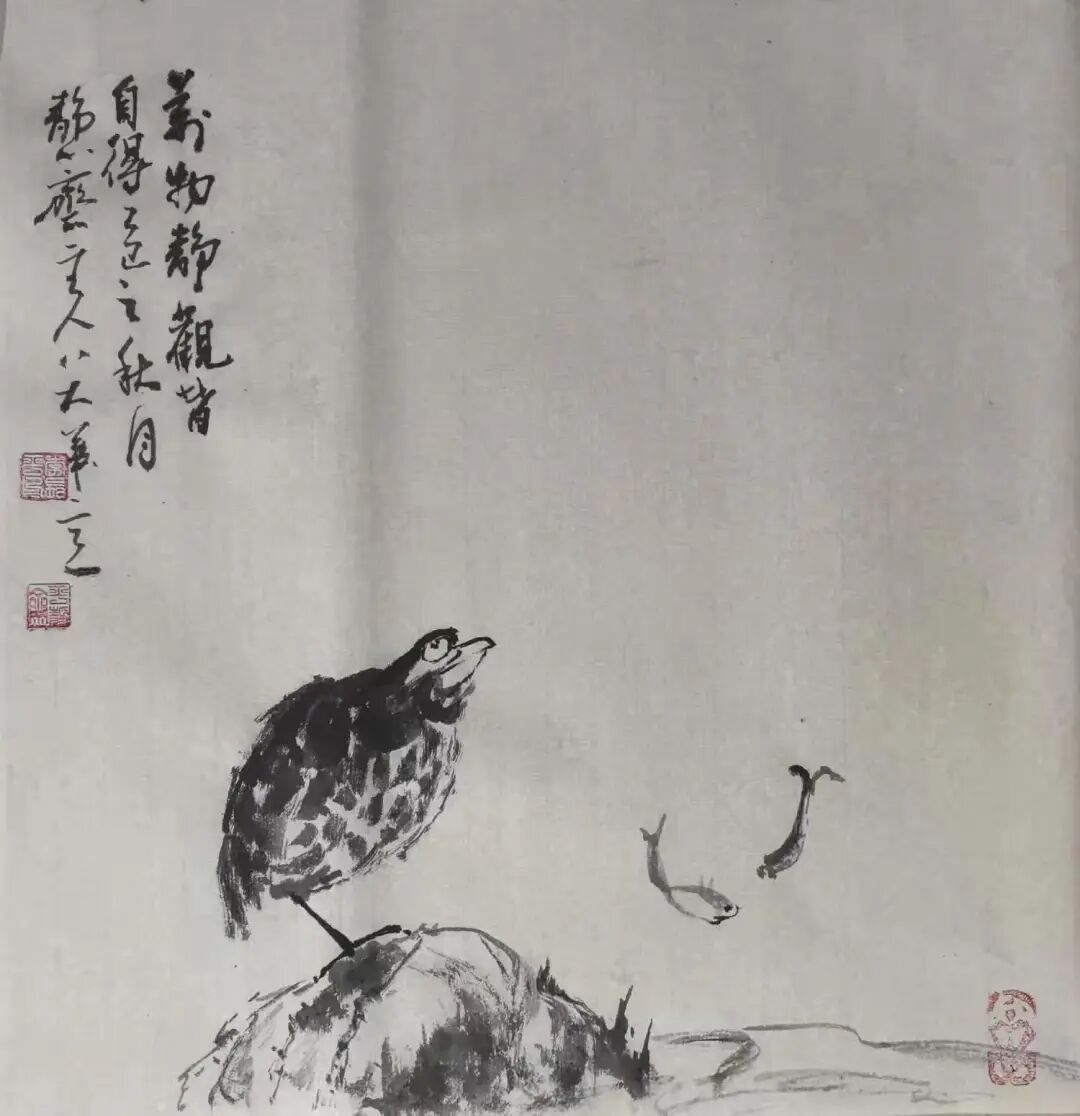 萬物靜觀皆
自得乙巳之秋月
靜心齋主人八大筆意